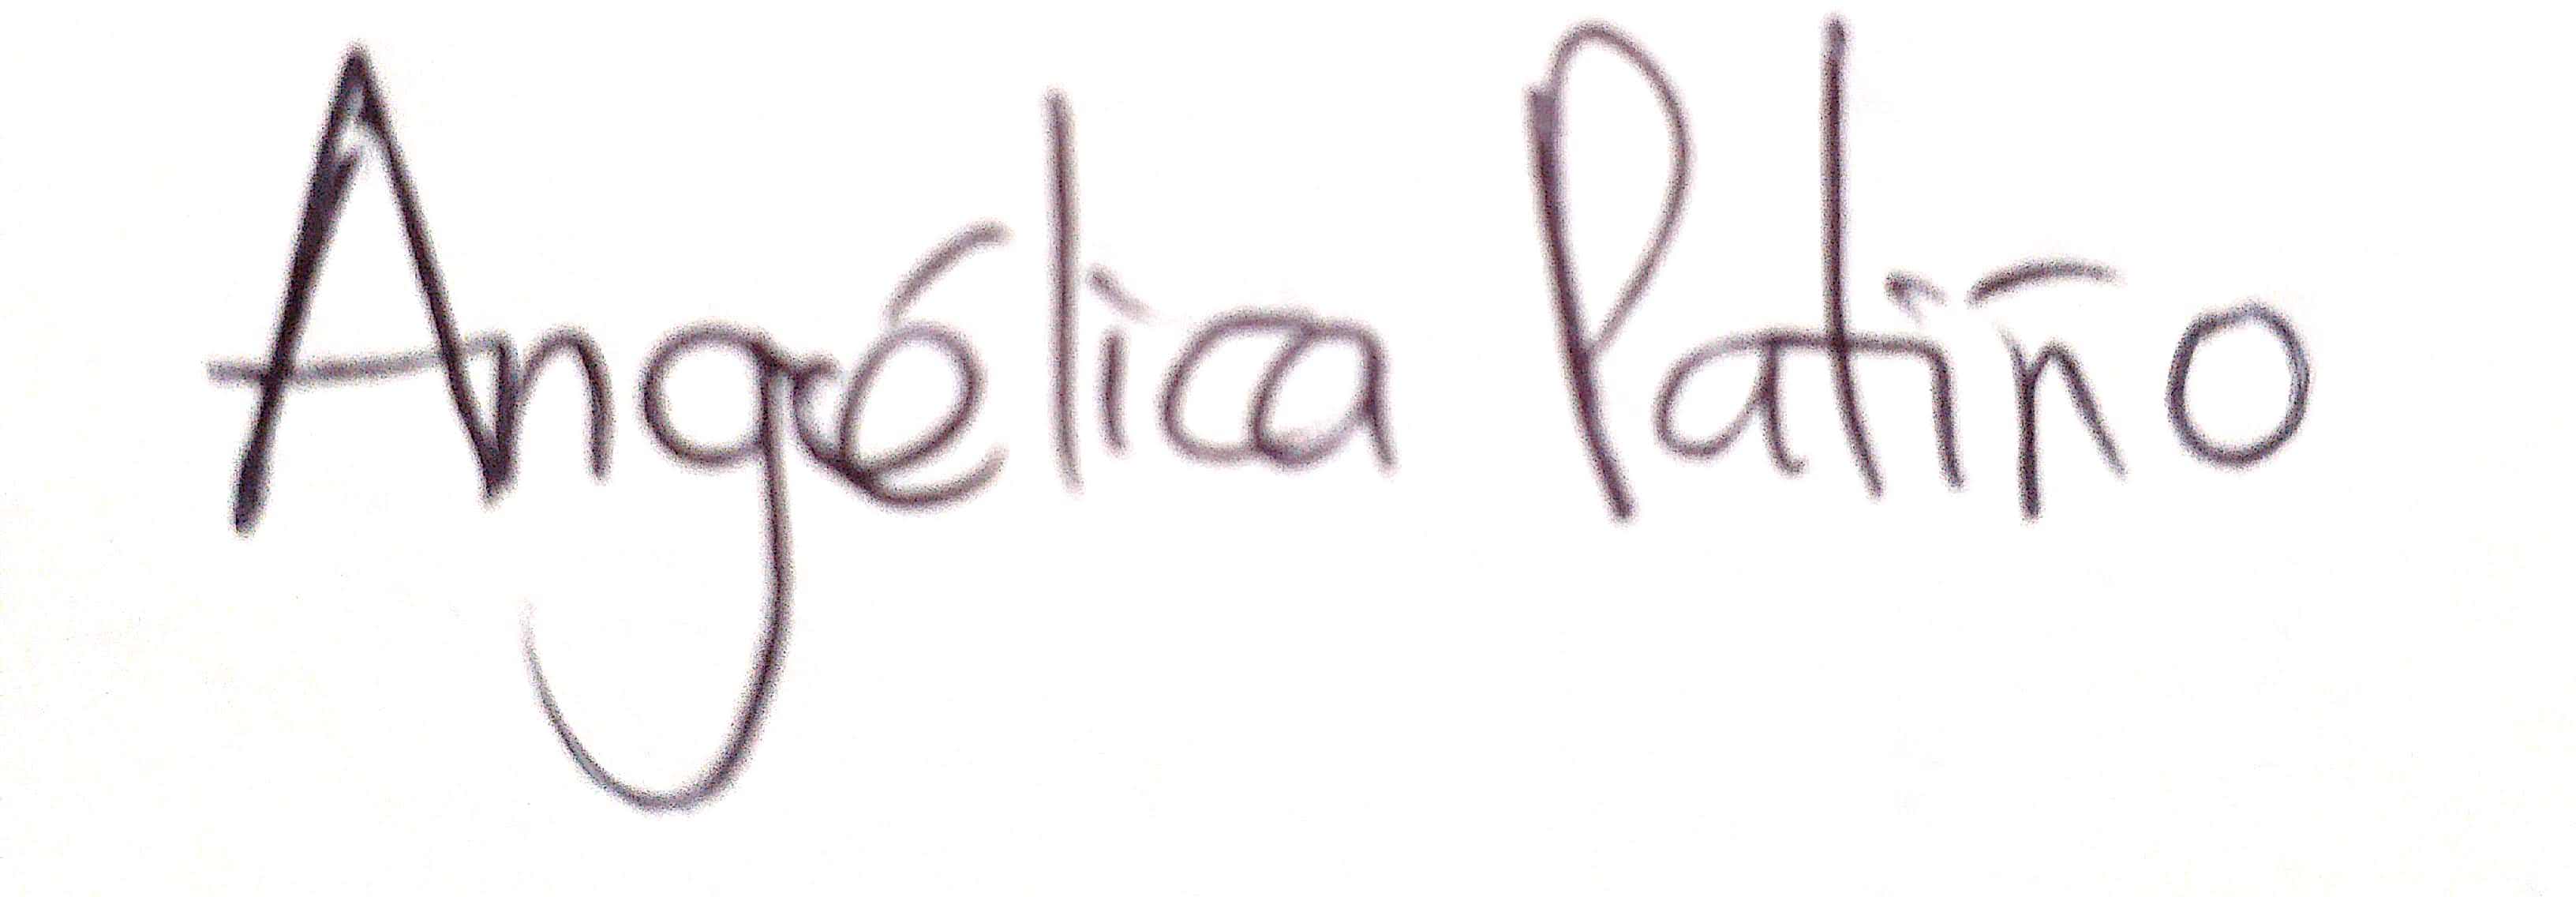 Angélica Patiño